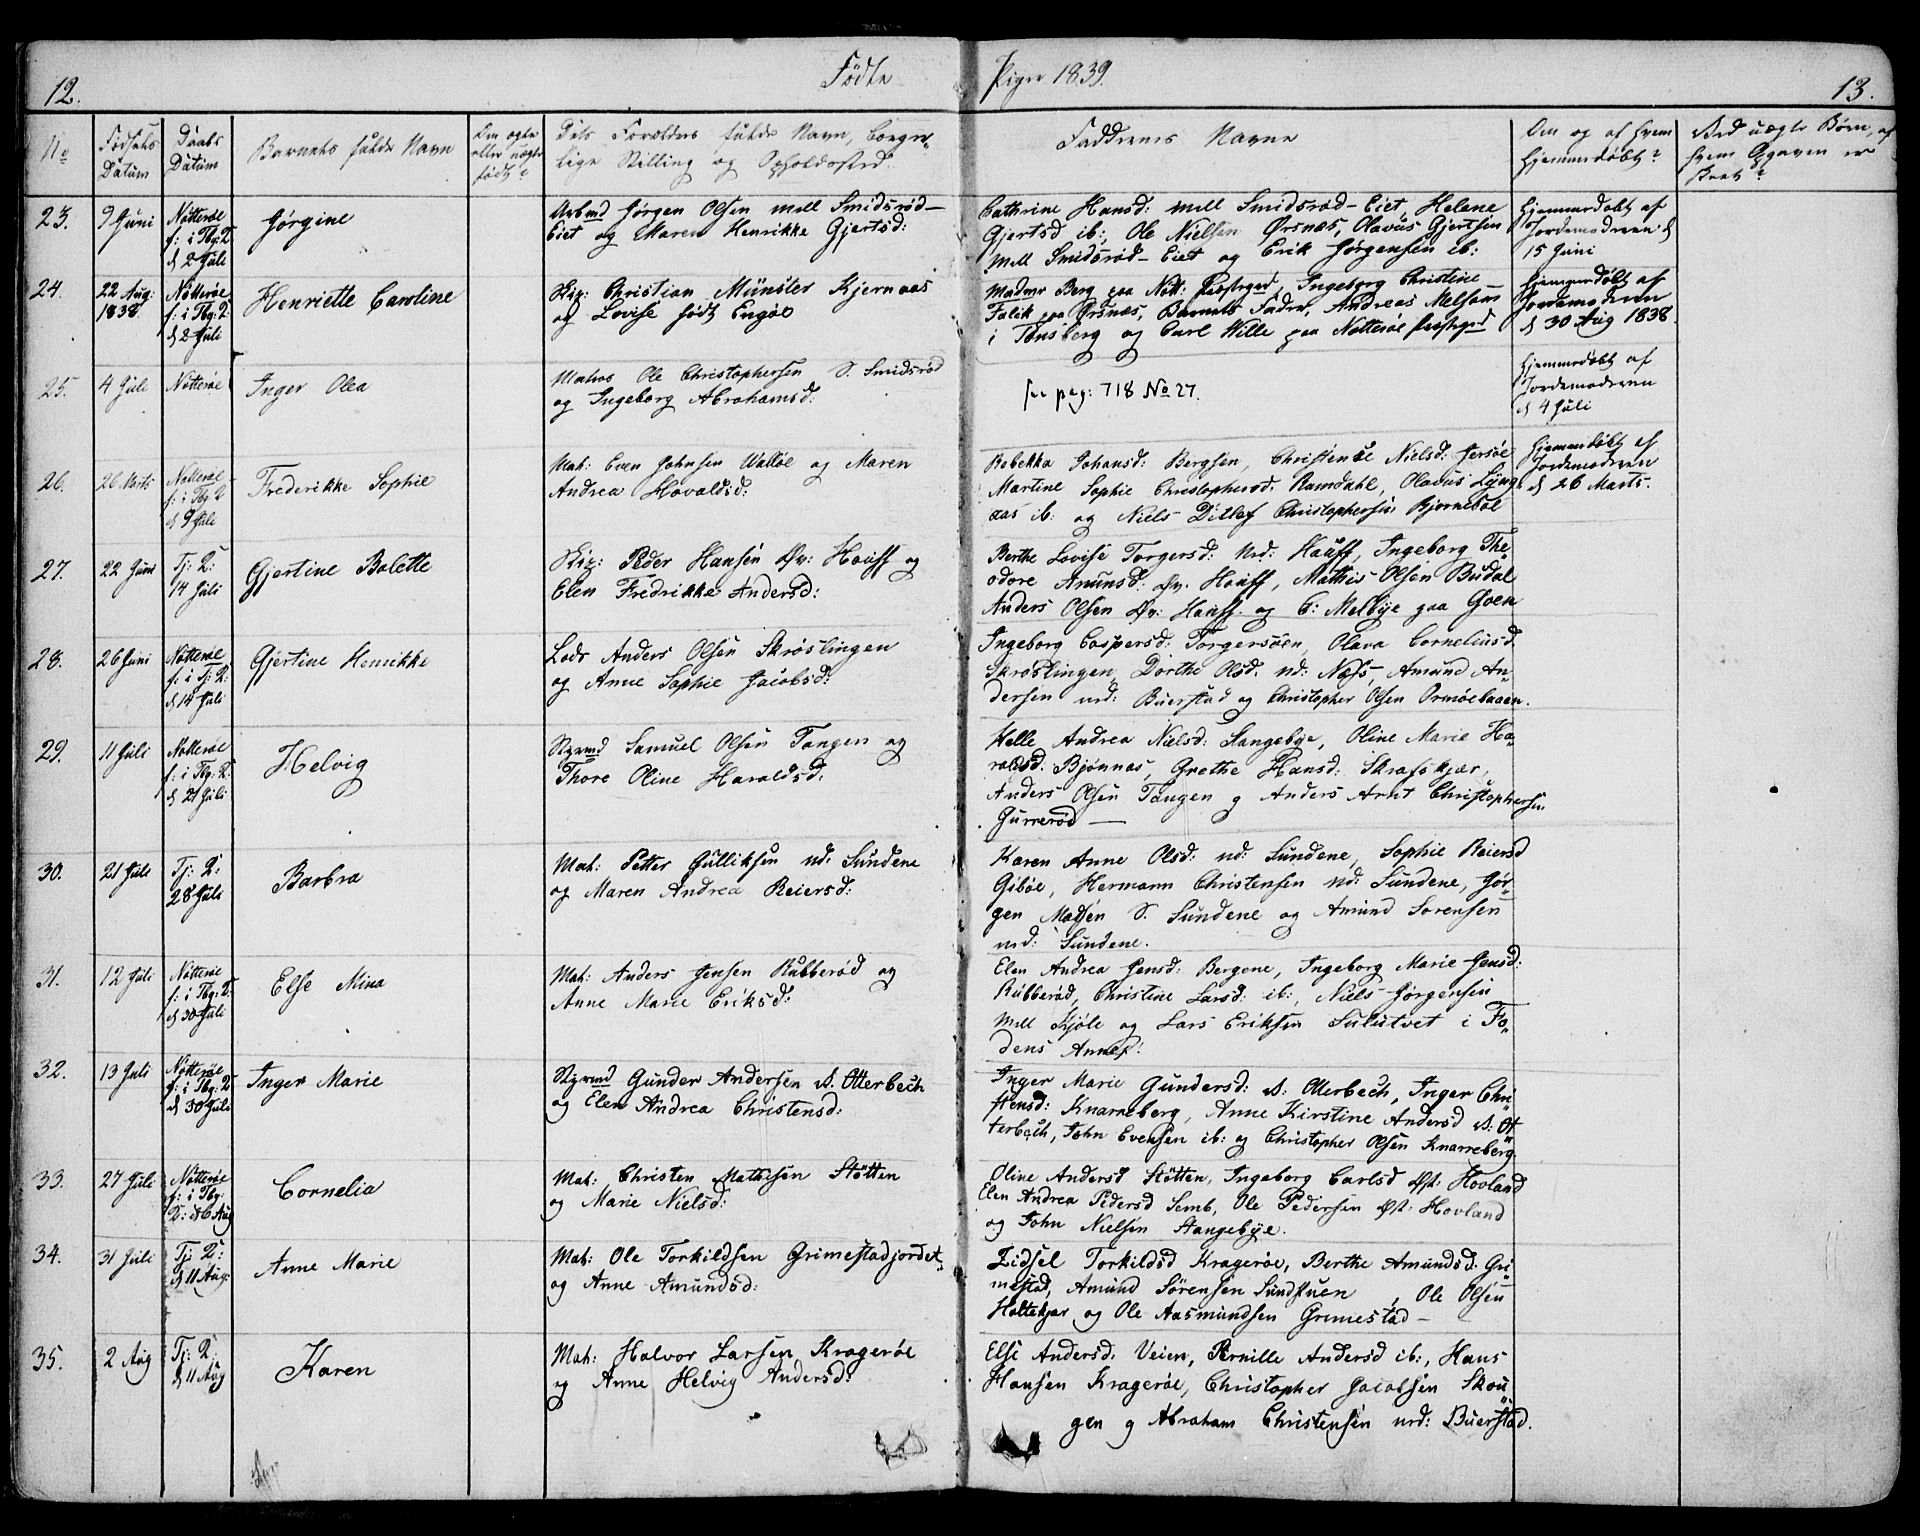 12.
Fødte
Piger 1839.
13.
No
Fødsels Datum
Daabs Datum
Barnets fulde Navn
Om ægte eller uægte født?
Dets Forældres fulde Navn, borger-
lige Stilling og Opholdssted.
Faddernes Navne
Om og af hvem
hjemmedøbt?
Ved uægte Børn, af
hvem Opgaven er
skeet?
23.
9 Juni
Nøtterøe
f: i Tbg: D:
d 2 Juli
Jørgine
Arbmd Jørgen Olsen mell Smidsrød-
Eiet og Maren Henrikke Gjertsd:
Cathrine Hansd: mell Smidsrød-Eiet, Helene
Gjertsd ib:, Ole Nielsen Ørsnæs, Olavus Gjertsen
mell Smidsrød-Eiet og Erik Jørgensen ib:
Hjemmedøbt af
Jordemoderen d
15 Juni
24.
22 Aug:
1838
Nøtterøe
f: i Tbg: D:
d 2 Juli
Henriette Caroline
Skip: Christian Münster Kjernaas
og Lovise født Engøe
Madme Berg paa Nøtt: Præstegrd, Ingeborg Christine
Falck paa Ørsnæs, Barnets Fader, Andreas Melsom
i Tønsberg og Carl Wille paa Nøtterøe Præstegrd
Hjemmedøbt af
Jordemoderen
d 30 Aug 1838
25.
4 Juli
Nøtterøe
Inger Olea
Matros Ole Christophersen S. Smidsrød
og Ingeborg Abrahamsd:
see pag: 718 No 27.
Hjemmedøbt af
Jordemoderen
d 4 Juli
26.
26 Marts
Nøtterøe
f: i Tbg: D
d 9 Juli
Frederikke Sophie
Mat: Even Johnsen Valløe og Maren
Andrea Hovaldsd:
Rebekka Johansd: Bergsen, Christense Nielsd: Jersøe
Martine Sophie Christophersd: Ramdahl, Olavus Lyng-
aas ib: og Niels Ditlef Christophersen Bjørnebol
Hjemmedøbt af
Jordemoderen
d 26 Marts.
27.
22 Juni
Tj: D:
14 Juli
Gjertine Bolette
Skip: Peder Hansen Øv: Houff og
Elen Fredrikke Andersd:
Berthe Lovise Torgersd: Nrd: Hauff, Ingeborg The-
odore Amunsd: Øv. Houff, Mathis Olsen Budal
Anders Olsen Øv: Hauff og C: Melbye paa Goen
28.
26 Juni
Nøtterøe
f: i Tj: D:
d 14 Juli
Gjertine Henrikke
Lods Anders Olsen Skrøslingen
og Anne Sophie Jacobsd:
Ingeborg Caspersd: Torgersøen, Olava Corneliusd.
Skrøslingen, Dorthe Olsd. nd: Næss, Amund An-
dersen nrd: Buerstad og Christopher Olsen Ormøebaaen.
29.
11 Juli
Nøtterøe
f: i Tbg: D:
d 21 Juli
Helvig
Styrmd Samuel Olsen Tangen og
Thore Oline Haraldsd:
Helle Andrea Nielsd: Stangebye, Oline Marie Ha-
raldsd: Bjønnæs, Grethe Hansd: Skrafskjær,
Anders Olsen Tangen g Anders Arnt Christophersen
Gurrerød —
30.
21 Juli
Tj: D:
28 Juli
Barbra
Mat: Petter Gulliksen nd: Sundene
og Maren Andrea Reiersd:
Karen Anne Olsd: nd: Sundene, Sophie Reiersd
Gibøe, Hermann Christensen nd: Sundene, Jør-
gen Madsen S. Sundene og Amund Sørensen
nrd: Sundene.
31.
12 Juli
Nøtterøe
f: i Tbg: D:
d 30 Juli
Else Mina
Mat: Anders Jensen Rubberød og
Anne Marie Eriksd:
Elen Andrea Jensd: Bergene, Ingeborg Marie Jensd:
Rubberød, Christine Larsd: ib:, Niels Jørgensen
mell Kjøle og Lars Eriksen Sulutvet i Fo-
dens Annex.
32.
13 Juli
Nøtterøe
f: i Tbg: D
d 30 Juli
Inger Marie
Styrmd Gunder Andersen v. Otterbech
og Elen Andrea Christensd:
Inger Marie Gundersd: v: Otterbech, Inger Chri-
stensd: Knarreberg, Anne Kirstine Andersd v: Ot-
terbech, John Evensen ib: og Christopher Olsen Knarreberg
33.
27 Juli
Nøtterøe
f: i Tbg:
D: d 6 Aug
Cornelia
Mat: Christen Mathisen Støtten
og Marie Nielsd:
Oline Andersd Støtten, Ingeborg Carlsd Øst: Hovland
Elen Andrea Pedersd Semb, Ole Pedersen Øst: Hovland
og John Nielsen Stangebye.
34.
31 Juli
Tj: D:
d 11 Aug:
Anne Marie
Mat: Ole Torkildsen Grimestadjordet
og Anne Amundsd:
Zidsel Torkildsd Kragerøe, Berthe Amundsd: Gri-
mestad, Amund Sørensen Sundstuen, Ole Olsen
Holtekjær og Ole Aasmundsen Grimestad —
35.
2 Aug
Tj: D:
d 11 Aug
Karen
Mat: Halvor Larsen Kragerøe
og Anne Helvig Andersd:
Else Andersd: Veien, Pernille Andersd ib:, Hans
Hansen Kragerøe, Christopher Jacobsen Skou-
gen g Abraham Christensen nrd: Buerstad.